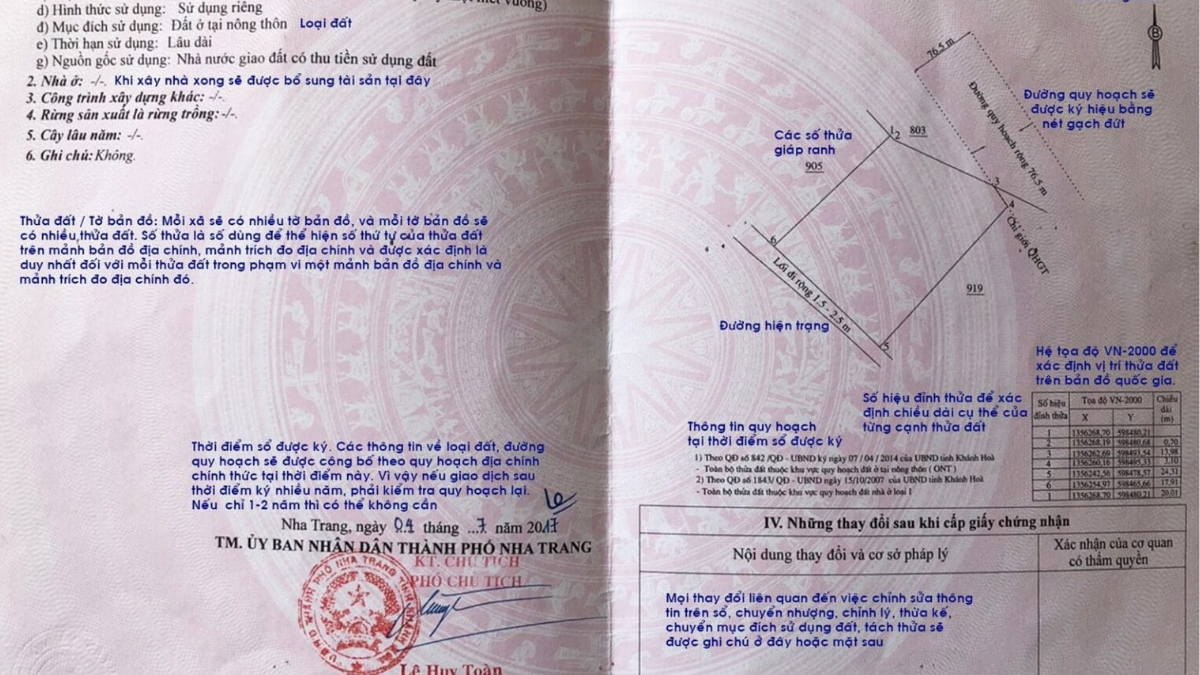 d) Hình thức sử dụng: Sử dụng riêng
đ) Mục đích sử dụng: Đất ở tại nông thôn Loại đất
e) Thời hạn sử dụng: Lâu dài
g) Nguồn gốc sử dụng: Nhà nước giao đất có thu tiền sử dụng đất
2. Nhà ở: -/-. Khi xây nhà xong sẽ được bổ sung tài sản tại đây
3. Công trình xây dựng khác: -/-.
4. Rừng sản xuất là rừng trồng: -/-.
5. Cây lâu năm: -/-.
6. Ghi chú: Không.
Thửa đất / Tờ bản đồ: Mỗi xã sẽ có nhiều tờ bản đồ, và mỗi tờ bản đồ sẽ
có nhiều thửa đất. Số thửa là số dùng để thể hiện số thứ tự của thửa đất
trên mảnh bản đồ địa chính, mảnh trích đo địa chính và được xác định là
duy nhất đối với mỗi thửa đất trong phạm vi một mảnh bản đồ địa chính và
mảnh trích đo địa chính đó.
Thời điểm sổ được ký. Các thông tin về loại đất, đường
quy hoạch sẽ được công bố theo quy hoạch địa chính
chính thức tại thời điểm này. Vì vậy nếu giao dịch sau
thời điểm ký nhiều năm, phải kiểm tra quy hoạch lại.
Nếu chỉ 1-2 năm thì có thể không cần
Nha Trang, ngày 04 tháng ...7 năm 2017
TM. ỦY BAN NHÂN DÂN THÀNH PHỐ NHA TRANG
KT. CHỦ TỊCH
PHÓ CHỦ TỊCH
Lê Huy Toàn
B
76.5 m
Đường quy hoạch rộng 76.5 m
Đường quy hoạch sẽ
được ký hiệu bằng
nét gạch đứt
Các số thửa
giáp ranh
905
1
2
803
3
4
Chỉ giới QHGT
6
Lối đi rộng 1.5 - 2.5 m
919
5
Đường hiện trạng
Hệ tọa độ VN-2000 để
xác định vị trí thửa đất
trên bản đồ quốc gia.
Số hiệu đỉnh thửa để xác
định chiều dài cụ thể của
từng cạnh thửa đất
Số hiệu đỉnh thửa Tọa độ VN-2000 Chiều dài (m)
X Y
1 1356268,70 598480,21
2 1356268,19 598480,68 0,70
3 1356262,69 598493,54 13,98
4 1356260,16 598495,33
5 1356242,56 598478,57 24,31
6 1356254,97 598465,66 17,91
1 1356268,70 598480,21 20,01
Thông tin quy hoạch
tại thời điểm sổ được ký
1) Theo QĐ số 842 /QĐ - UBND ký ngày 07 / 04 / 2014 của UBND tỉnh Khánh Hoà
- Toàn bộ thửa đất thuộc khu vực quy hoạch đất ở tại nông thôn ( ONT )
2) Theo QĐ số 1843/ QĐ - UBND ngày 15/10/2007 của UBND tỉnh Khánh Hoà
- Toàn bộ thửa đất thuộc khu vực quy hoạch đất nhà ở loại 1
IV. Những thay đổi sau khi cấp giấy chứng nhận
Nội dung thay đổi và cơ sở pháp lý
Xác nhận của cơ quan
có thẩm quyền
Mọi thay đổi liên quan đến việc chỉnh sửa thông
tin trên sổ, chuyển nhượng, chỉnh lý, thừa kế,
chuyển mục đích sử dụng đất, tách thửa sẽ
được ghi chú ở đây hoặc mặt sau